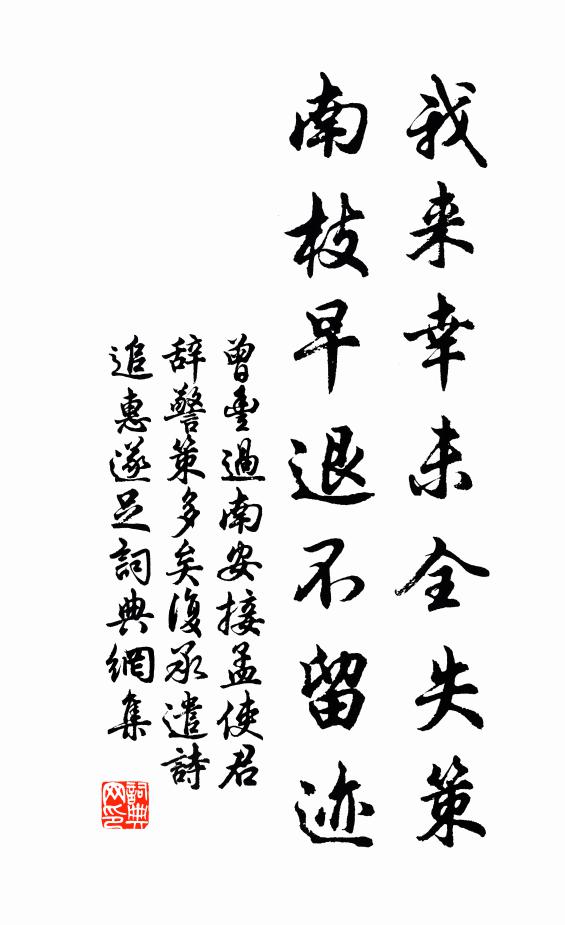 我来幸未全失策
南枝早退不留迹
曾豐過南安接孟使君
辞警策多矣復承遣詩
追惠遂足詞典網集
詞典網印